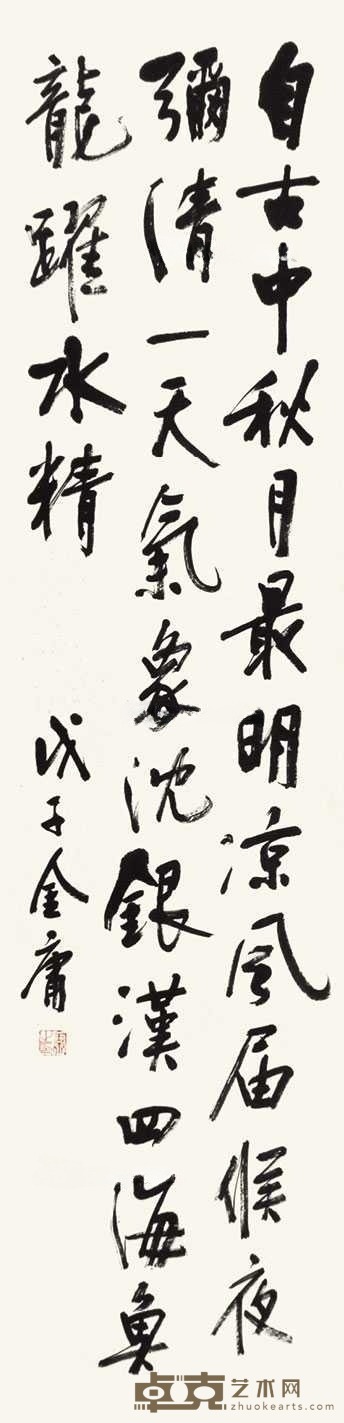 自古中秋月最明凉风届候夜
彌清一天氣象沈銀漢四海魚
龍躍水精
戊子金庸
卓克艺术网
zhuokearts.com